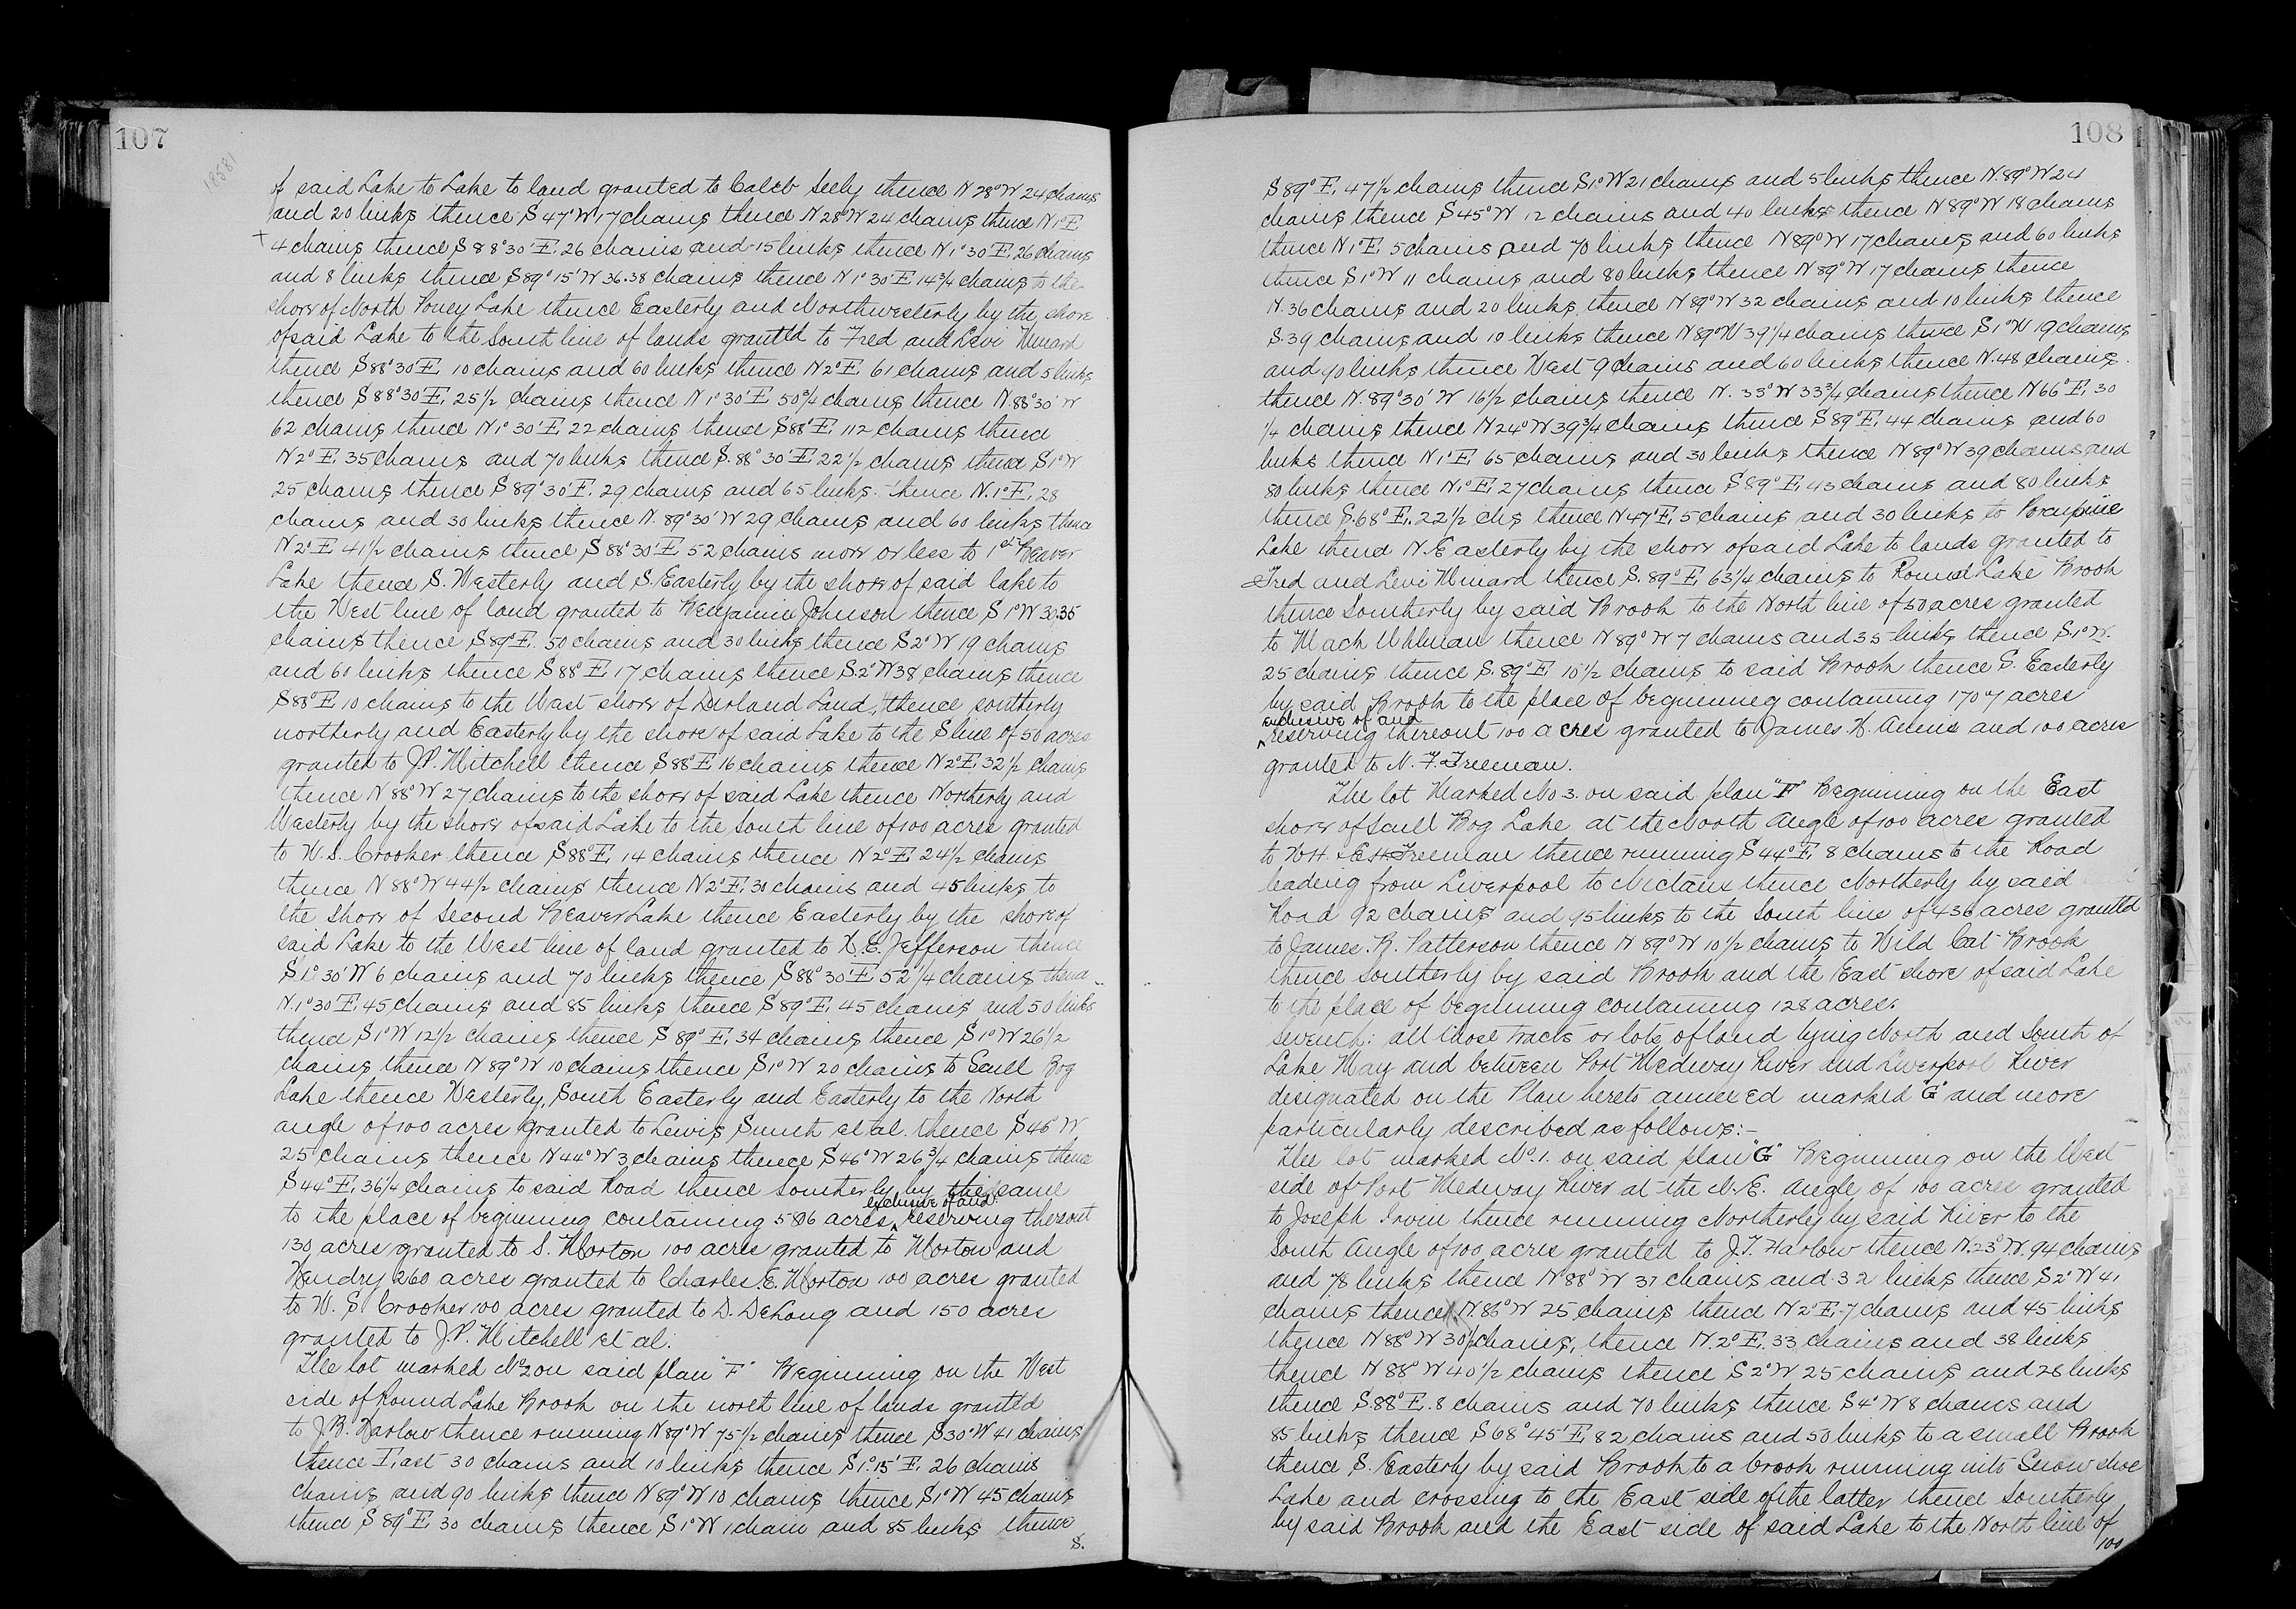 107
18581
of said Lake to Lake to land granted to Caleb Seely thence N 28° W 24 chains
and 20 links thence S 47° W 17 chains thence N 28° W 24 chains thence N 1° E
4 chains thence S 88° 30' E. 26 chains and 15 links thence N 1° 30' E. 26 chains
and 8 links thence S 89° 15' W 36.38 chains thence N 1° 30' E 14 3/4 chains to the
shore of North Poney Lake thence Easterly and Northwesterly by the shore
of said Lake to the South line of lands granted to Fred and Levi Minard
thence S 88° 30' E 10 chains and 60 links thence N 2° E. 61 chains and 5 links
thence S 88° 30' E. 25 1/2 chains thence N 1° 30' E 50 3/4 chains thence N. 88° 30' W
62 chains thence N 1° 30' E. 22 chains thence S 88° E. 112 chains thence
N 2° E. 35 chains and 70 links thence S. 88° 30' E. 22 1/2 chains thence S 1° W
25 chains thence S 89° 30' E. 29 chains and 65 links. thence N. 1° E. 28
chains and 30 links thence N. 89° 30' W 29 chains and 60 links thence
N 2° E 41 1/2 chains thence S 88° 30' E 52 chains more or less to 1st Beaver
Lake thence S. Westerly and S. Easterly by the shore of said lake to
the West line of land granted to Benjamin Johnson thence S 1° W 30.35
chains thence S 89° E. 50 chains and 30 links thence S 2° W 19 chains
and 60 links thence S 88° E 17 chains thence S. 2° W 38 chains thence
S 88° E 10 chains to the West shore of Dorland Land, thence southerly
northerly and Easterly by the shore of said Lake to the S line of 50 acres
granted to J.P. Mitchell thence S 88° E 16 chains thence N 2° E. 32 1/2 chains
thence N 88° W 27 chains to the shore of said Lake thence Northerly and
Westerly by the shore of said Lake to the South line of 100 acres granted
to W. S. Crooker thence S 88° E. 14 chains thence N 2° E. 24 1/2 chains
thence N 88° W 44 1/2 chains thence N 2° E. 30 chains and 45 links to
the shore of Second Beaver Lake thence Easterly by the shore of
said Lake to the West line of land granted to D. E. Jefferson thence
S 1° 30' W 6 chains and 70 links thence S 88° 30' E 52 1/4 chains thence
N. 1° 30' E. 45 chains and 85 links thence S 89° E. 45 chains and 50 links
thence S 1° W 12 1/2 chains thence S 89° E. 34 chains thence S 1° W 26 1/2
chains thence N 89° W 10 chains thence S 1° W 20 chains to Scull Bog
Lake thence Westerly, South Easterly and Easterly to the North
angle of 100 acres granted to Lewis Smith et al. thence S 46° W
25 chains thence N 44° W 3 chains thence S 46° W 26 3/4 chains thence
S 44° E. 36 1/4 chains to said Road thence Southerly by the same
exclusive of and
to the place of beginning containing 5806 acres, reserving thereout
130 acres granted to S. Morton 100 acres granted to Morton and
Hendry 260 acres granted to Charles E. Morton 100 acres granted
to W. S. Crooker 100 acres granted to D. DeLong and 150 acres
granted to J.P. Mitchell et al.
The lot marked No 2 on said plan "F" Beginning on the West
side of Round Lake Brook on the north line of lands granted
to J. B. Harlow thence running N 89° W 75 1/2 chains thence S 30° W 41 chains
thence East 30 chains and 10 links thence S 1° 15' E. 26 chains
chains and 90 links thence N 89° W 10 chains thence S 1° W 45 chains
thence S 89° E 30 chains thence S 1° W 1 chain and 85 links thence
S.
108
S 89° E. 47 1/2 chains thence S 1° W 21 chains and 5 links thence N. 89° W 24
chains thence S 45° W 12 chains and 40 links thence N 89° W 18 chains
thence N 1° E. 5 chains and 70 links thence N 89° W 17 chains and 60 links
thence S 1° W 11 chains and 80 links thence N 89° W 17 chains thence
N. 36 chains and 20 links thence N 89° W 32 chains and 10 links thence
S. 39 chains and 10 links thence N 89° W 39 1/4 chains thence S 1° W 19 chains
and 90 links thence West 9 chains and 60 links thence N. 48 chains.
thence N. 89° 30' W 16 1/2 chains thence N. 33° W 33 3/4 chains thence N 66° E. 30
1/4 chains thence N 24° W 39 3/4 chains thence S 89° E. 44 chains and 60
links thence N 1° E. 65 chains and 30 links thence N 89° W 39 chains and
80 links thence N 1° E. 27 chains thence S 89° E. 43 chains and 80 links
thence S. 68° E. 22 1/2 chs thence N 47° E. 5 chains and 30 links to Porcupine
Lake thence N. Easterly by the shore of said Lake to lands granted to
Fred and Levi Minard thence S. 89° E. 63 1/4 chains to Round Lake Brook
thence Southerly by said Brook to the North line of 50 acres granted
to Mach Uhlman thence N 89° W 7 chains and 35 links thence S. 1° W.
25 chains thence S. 89° E. 10 1/2 chains to said Brook thence S. Easterly
by said Brook to the place of beginning containing 1707 acres
exclusive of and
reserving thereout 100 acres granted to James H. Annis and 100 acres
granted to N. F. Freeman.
The lot Marked No 3. on said plan "F" Beginning on the East
shore of Scull Bog Lake at the North Angle of 100 acres granted
to W.H. & E.H. Freeman thence running S 44° E. 8 chains to the Road
leading from Liverpool to Nictaux thence Northerly by said
Road 92 chains and 95 links to the South line of 436 acres granted
to James. R. Patterson thence N 89° W 10 1/2 chains to Wild Cat Brook
thence Southerly by said Brook and the East shore of said Lake
to the place of beginning containing 128 acres.
Seventh: all those tracts or lots of land lying North and South of
Lake May and between Port Medway River and Liverpool River
designated on the Plan hereto annexed marked "G" and more
particularly described as follows:—
The lot marked No. 1. on said plan "G" Beginning on the West
side of Port Medway River at the N. E. Angle of 100 acres granted
to Joseph Irvin thence running Northerly by said River to the
South Angle of 100 acres granted to J. T. Harlow thence N. 23° W. 94 chains
and 78 links thence N 88° W 37 chains and 32 links thence S 2° W 41
chains thence N. 86° W 25 chains thence N 2° E. 7 chains and 45 links
thence N 88° W 30 1/2 chains, thence N. 2° E. 33 chains and 38 links
thence N 88° W 40 1/2 chains thence S 2° W 25 chains and 28 links
thence S. 88° E. 8 chains and 70 links thence S 4° W 8 chains and
85 links thence S 68° 45' E. 82 chains and 50 links to a small Brook
thence S. Easterly by said Brook to a brook running into Snow shoe
Lake and crossing to the East side of the latter thence Southerly
by said Brook and the East side of said Lake to the North line of
100